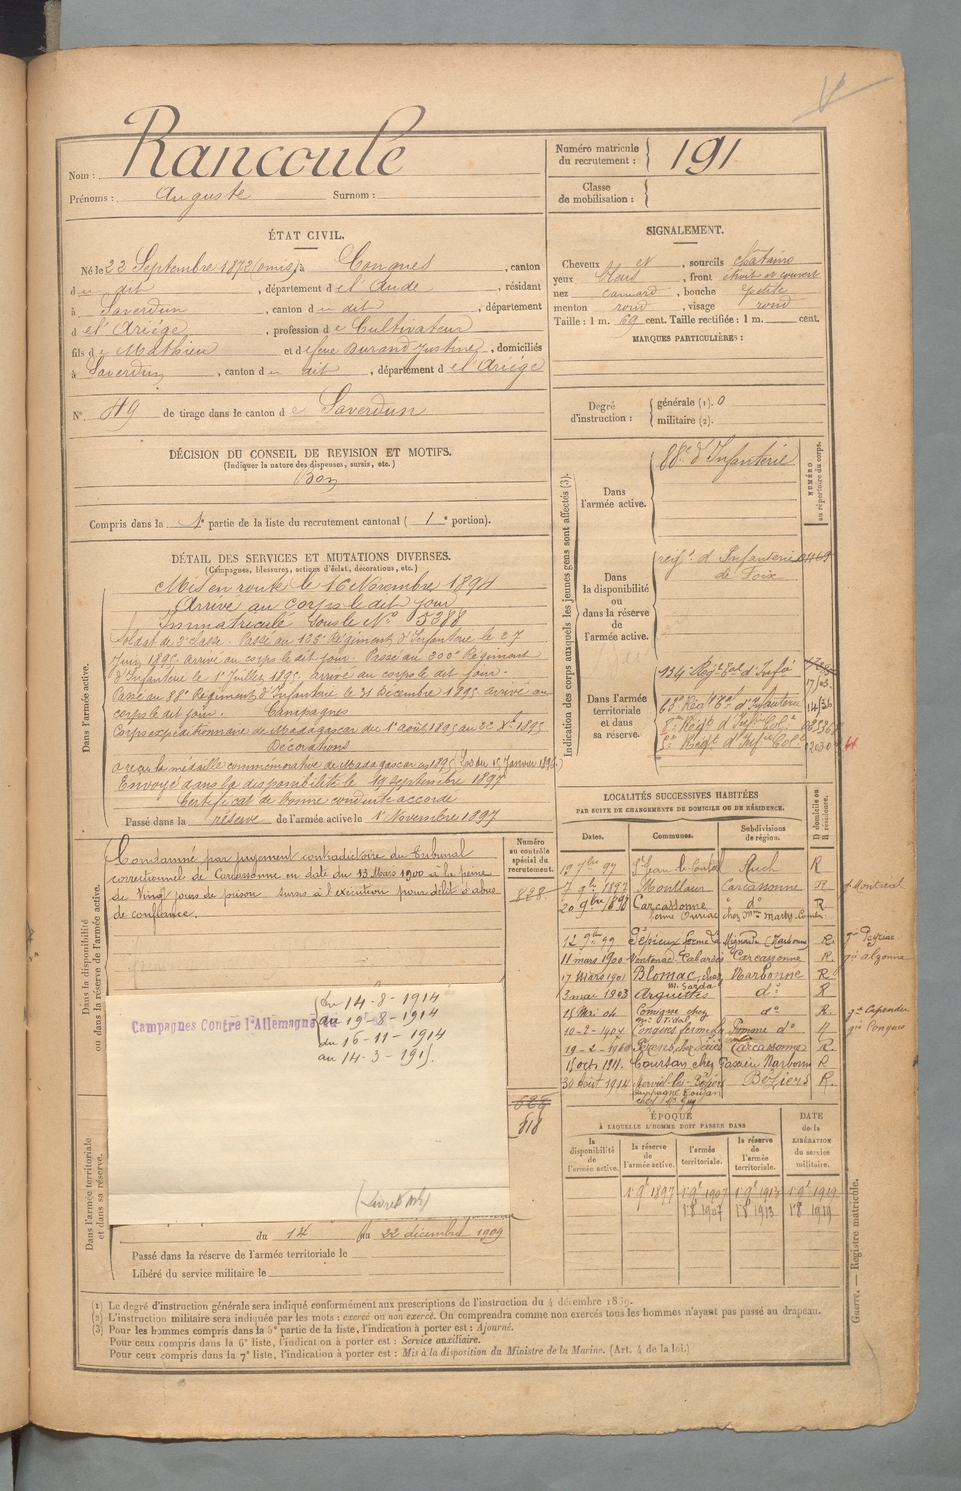 Nom : Rancoule
Prénoms : Auguste Surnom :
Numéro matricule du recrutement : 191
Classe de mobilisation :
ÉTAT CIVIL.
Né le 22 Septembre 1872 (omis) à Congues, canton
du dit, département de l'Aude, résidant
à Saverdun, canton du dit, département
de l'Ariège, profession de Cultivateur
fils de Mathieu et de feue Durand Justine, domiciliés
à Saverdun, canton du dit, département de l'Ariège
N° 49 de tirage dans le canton de Saverdun
SIGNALEMENT.
Cheveux et, sourcils châtains
yeux, front étroit et couvert
nez camard, bouche petite
menton rond, visage rond
Taille : 1 m. 69 cent. Taille rectifiée : 1 m. cent.
MARQUES PARTICULIÈRES :
Degré d'instruction : générale (1). 0
militaire (2).
DÉCISION DU CONSEIL DE REVISION ET MOTIFS.
(Indiquer la nature des dispenses, sursis, etc.)
Bon
Compris dans la 1e partie de la liste du recrutement cantonal ( 1e portion).
DÉTAIL DES SERVICES ET MUTATIONS DIVERSES.
(Campagnes, blessures, actions d'éclat, décorations, etc.)
Dans l'armée active.
Mis en route le 16 Novembre 1894
Arrivé au corps le dit jour
Immatriculé sous le N° 5388
Soldat de 2e classe. Passé au 135e Régiment d'Infanterie le 27
Juin 1895. arrivé au corps le dit jour. Passé au 200e Régiment
d'Infanterie le 1er Juillet 1895. arrivé au corps le dit jour.
Passé au 88e Régiment d'Infanterie le 31 Décembre 1895 arrivé au
corps le dit jour. Campagnes
Corps expéditionnaire de Madagascar du 1er Août 1895 au
Décorations
a reçu la médaille commémorative de Madagascar en 1895 (Loi du 15 Janvier 1896)
Envoyé dans la disponibilité le 19 septembre 1897
Certificat de bonne conduite accordé
Passé dans la réserve de l'armée active le 1er Novembre 1897
Dans la disponibilité ou dans la réserve de l'armée active.
Condamné par jugement contradictoire du Tribunal
correctionnel de Carcassonne en date du 13 Mars 1900 à la peine
de Vingt jours de prison sursis à l'exécution pour délit d'abus
de confiance.
Numéro au contrôle spécial du recrutement.
828
Campagnes Contre l'Allemagne
du 14-8-1914
au 19-8-1914
du 16-11-1914
au 14-3-1915.
628
818
Dans l'armée territoriale et dans sa réserve.
du 14 au 22 décembre 1909
Passé dans la réserve de l'armée territoriale le
Libéré du service militaire le
Indication des corps auxquels les jeunes gens sont affectés (3).
NUMÉRO au répertoire du corps.
Dans l'armée active.
88e d'Infanterie
Dans la disponibilité ou dans la réserve de l'armée active.
régt. d'Infanterie
de Foix
Dans l'armée territoriale et dans sa réserve.
134e Régt Tal d'Infie
LOCALITÉS SUCCESSIVES HABITÉES
PAR SUITE DE CHANGEMENTS DE DOMICILE OU DE RÉSIDENCE.
Dates. Communes. Subdivisions de région. D domicile ou R résidence.
Auch R
7 9bre 1897 Montlaur Carcassonne R
20 9bre 1898 Carcassonne do R
Narbonne R.
11 mars 1900 Carcassonne R.
17 Mars 1901 Blomac, chez Narbonne R
2 mai 1903 Arquettes do R
Comigne chez do R
10-2-1907 Congues ferme do
Carcassonne R.
15 oct. 1911. Coursan chez Narbonne R
30 Août 1914 Béziers R.
ÉPOQUE
À LAQUELLE L'HOMME DOIT PASSER DANS
la disponibilité de l'armée active.
la réserve de l'armée active.
l'armée territoriale.
la réserve de l'armée territoriale.
DATE de la LIBÉRATION du service militaire.
1er 9bre 1897 1er 9bre 1907 1er 9bre 1913 1er 9bre 1919
1er 8bre 1907 1er 8bre 1913 1er 8bre 1919
Guerre. — Registre matricule.
(1) Le degré d'instruction générale sera indiqué conformément aux prescriptions de l'instruction du 4 décembre 1889.
(2) L'instruction militaire sera indiquée par les mots : exercé ou non exercé. On comprendra comme non exercés tous les hommes n'ayant pas passé au drapeau.
(3) Pour les hommes compris dans la 5e partie de la liste, l'indication à porter est : Ajourné.
Pour ceux compris dans la 6e liste, l'indication à porter est : Service auxiliaire.
Pour ceux compris dans la 7e liste, l'indication à porter est : Mis à la disposition du Ministre de la Marine. (Art. 4 de la loi.)